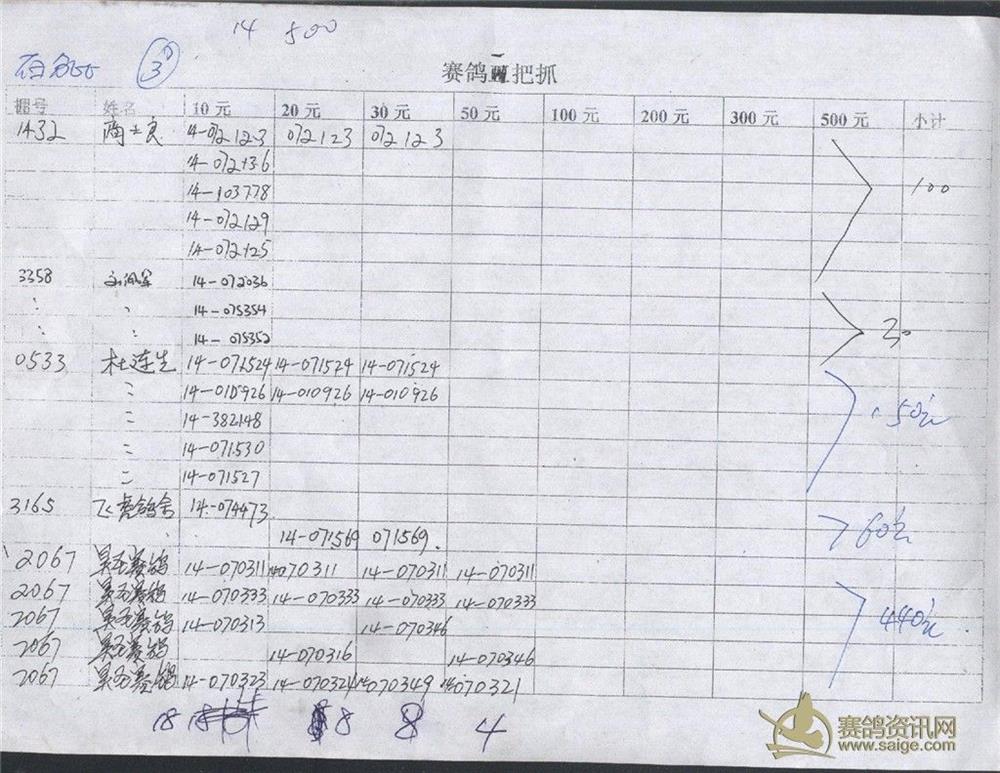 14 500
3
赛鸽 一把抓
棚号 姓名 10元 20元 30元 50元 100元 200元 300元 500元 小计
1432 商士良 14-072123 072123 072123
14-072136
14-103778 100
14-072129
14-072125
3358 14-072036
14-075354
14-075352 30
0533 杜连生 14-071524 14-071524 14-071524
14-010926 14-010926 14-010926
14-382148 150元
14-071530
14-071527
3165 飞虎鸽舍 14-074473
14-071569 071569. 60元
2067 14-070311 14-070311 14-070311 14-070311
2067 14-070333 14-070333 14-070333 14-070333
2067 14-070313 14-070346 440元
2067 14-070316 14-070346
2067 14-070323 14-070324 14-070349 14-070321
18 18 8 8 4
赛鸽资讯网
www.saige.com